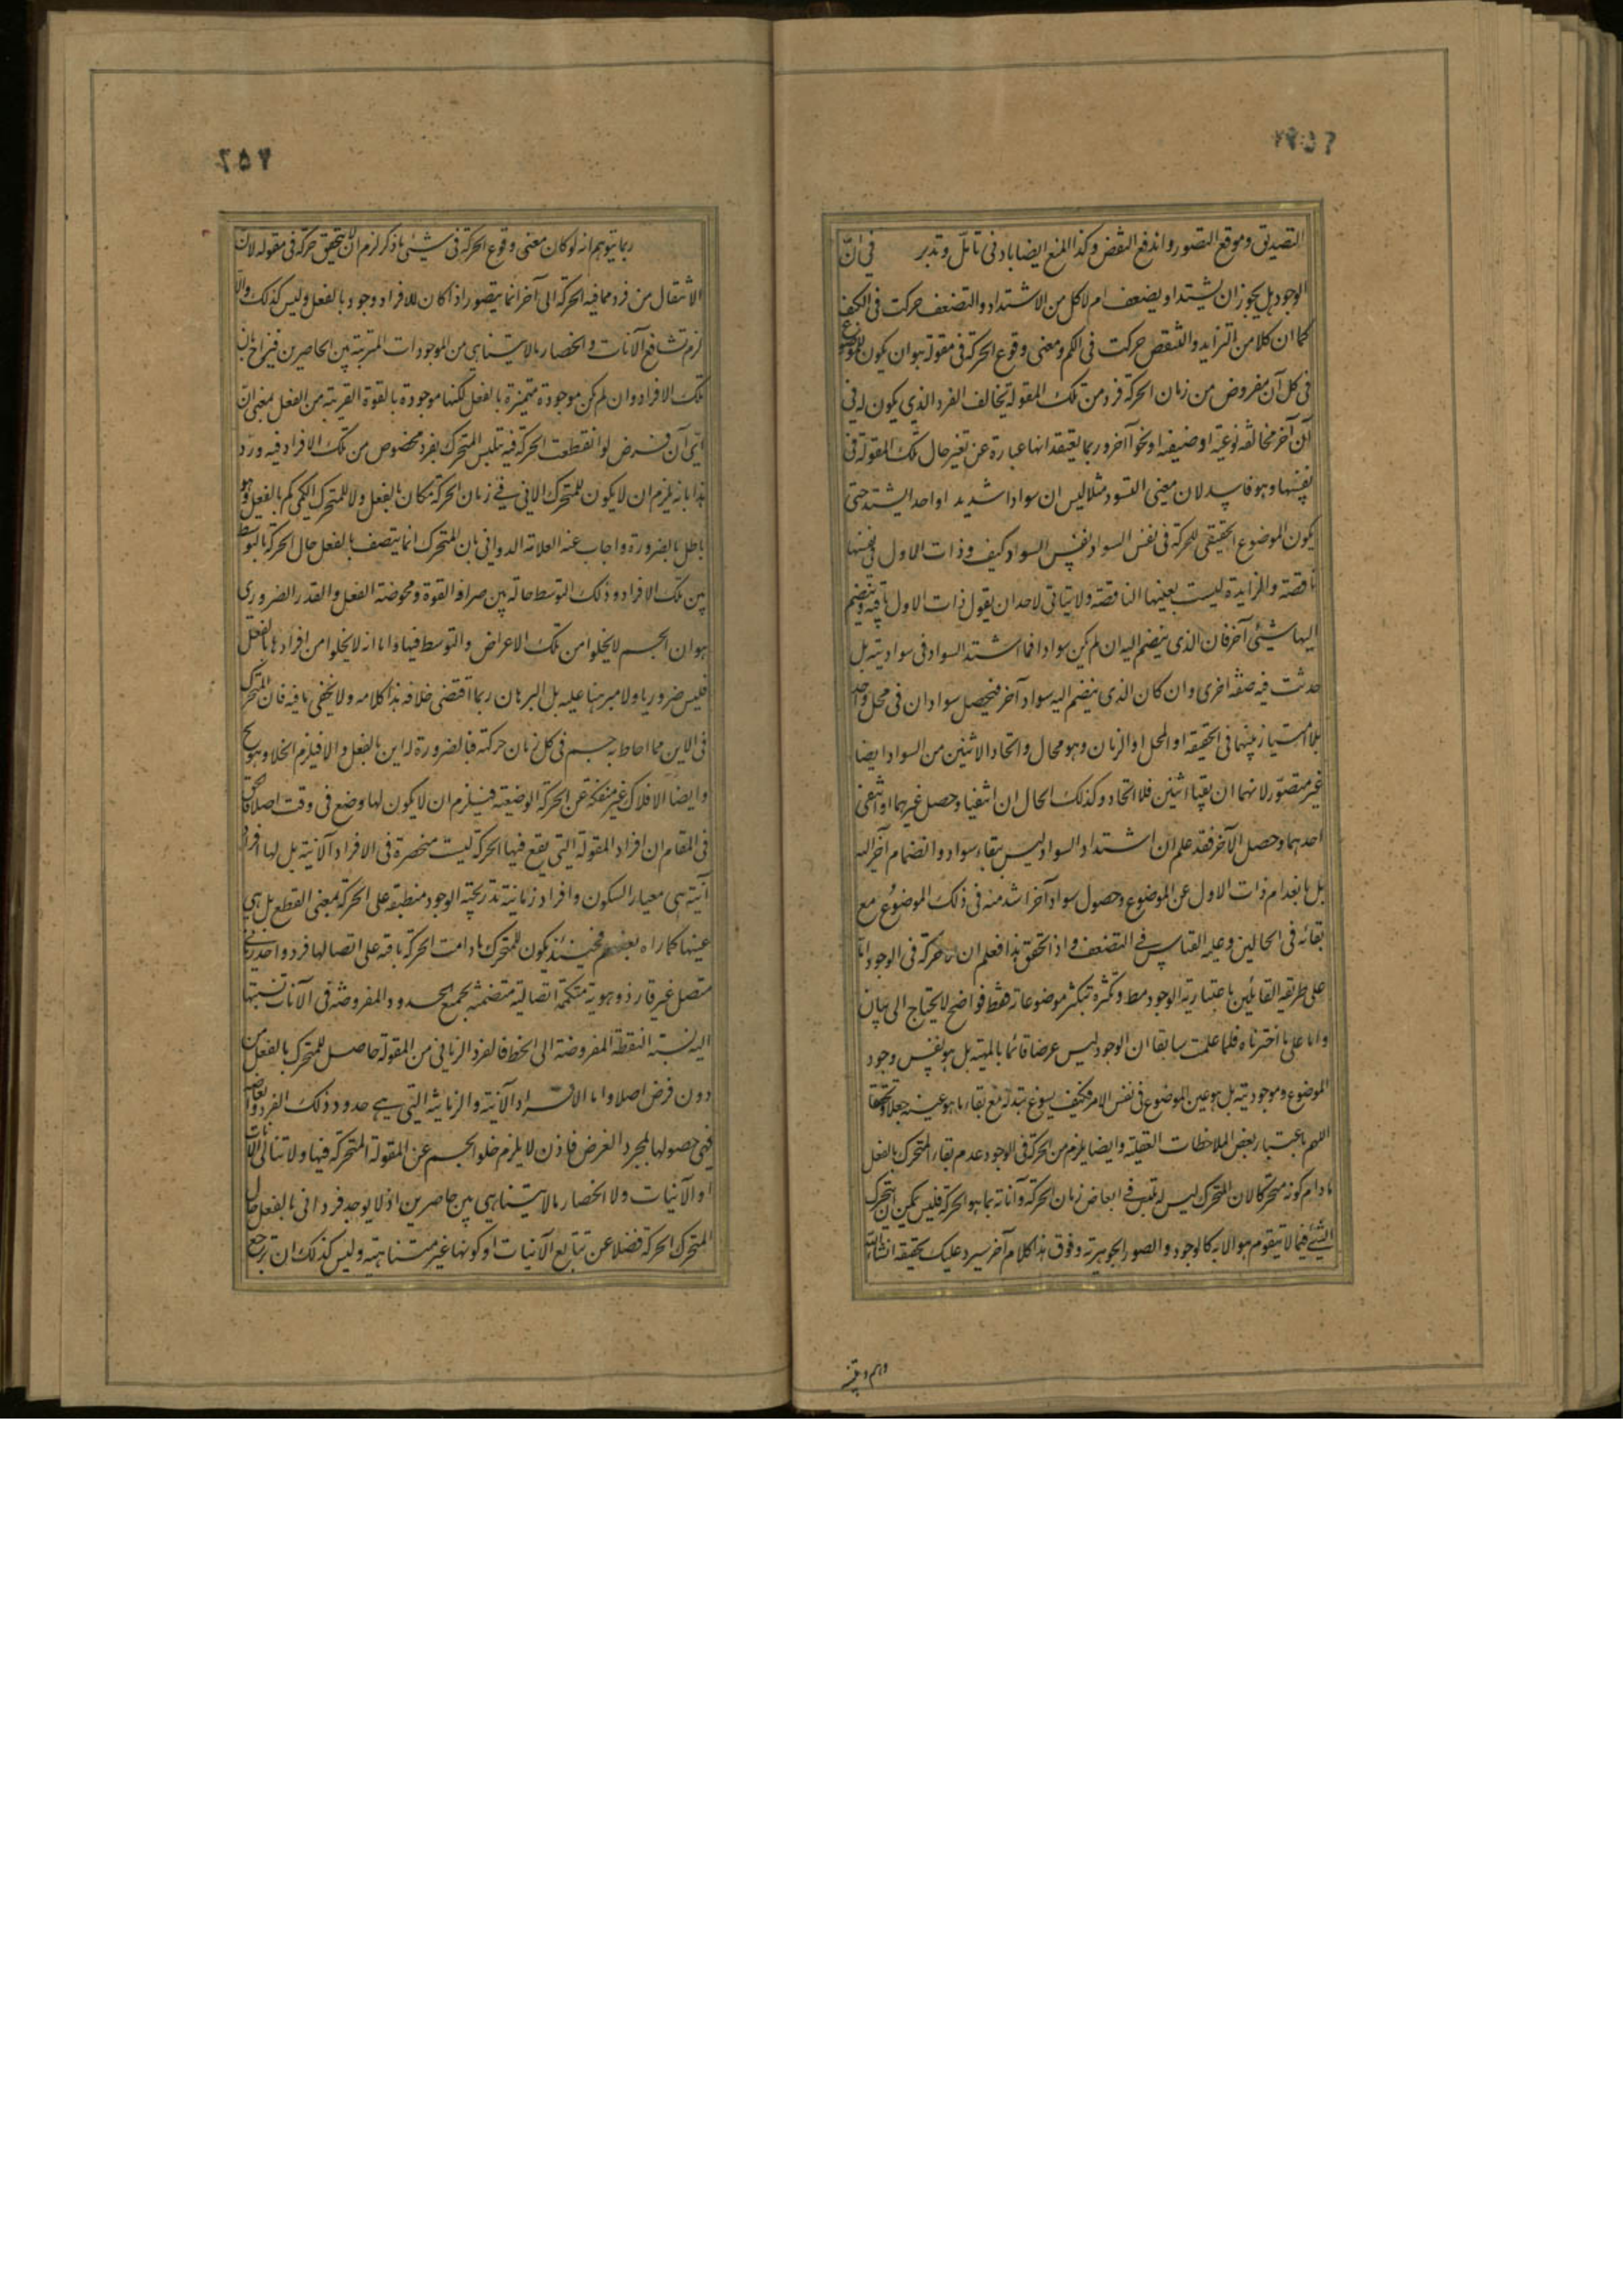 التصديق وموقع التصور واندفع النقض وكذا المنع ايضا بادنى تامل وتدبر في ان
الوجود هل يجوز ان يشتد او يضعف ام لا كل من الاشتداد والتضعف حركت فى الكيف
كما ان كلا من التزايد والتنقص حركت فى الكم ومعنى وقوع الحركة فى مقولة هو ان يكون للموضوع
فى كل آن مفروض من زمان الحركة فرد من تلك المقولة يخالف الفرد الذي يكون له فى
آن آخر مخالفة نوعية او صنفية او نحوا آخر وربما يعتقد انها عبارة عن تغير حال تلك المقولة فى
نفسها وهو فاسد لان معنى التسود مثلا ليس ان سوادا شديدا واحدا يشتد حتى
يكون الموضوع الحقيقى للحركة فى نفس السواد نفس السواد كيف وذات الاول فى نفسها
ناقصة والزايدة ليست بعينها الناقصة ولا يتاتى لاحد ان يقول ذات الاول باقية وينضم
اليها شيئ آخر فان الذى ينضم اليه ان لم يكن سوادا فما اشتد السواد فى سواديته بل
حدثت فيه صفة اخرى وان كان الذى ينضم اليه سواد آخر فيحصل سوادان فى محل واحد
بلا امتياز بينهما فى الحقيقة او المحل او الزمان وهو محال واتحاد الاثنين من السواد ايضا
غير متصور لانهما ان بقيا اثنين فلا اتحاد وكذلك الحال ان انتفيا وحصل غيرهما او انتفى
احدهما وحصل الآخر فقد علم ان اشتداد السواد ليس ببقاء سواد وانضمام آخر اليه
بل بانعدام ذات الاول عن الموضوع وحصول سواد آخر اشد منه فى ذلك الموضوع مع
بقائه فى الحالين وعليه القياس فى التضعف واذا تحقق هذا فعلم ان لا حركة فى الوجود اما
على طريقة القائلين باعتبارية الوجود مط وتكثره بتكثر موضوعاته فقط فواضح لا يحتاج الى بيان
واما على ما اخترناه فلما علمت سابقا ان الوجود ليس عرضا قائما بالمهية بل هو نفس وجود
الموضوع وموجوديته بل هو عين الموضوع فى نفس الامر فكيف يسوغ تبدله مع بقاء ما هو عينه جعلا وتحققا
اللهم باعتبار بعض الملاحظات العقلية وايضا يلزم من الحركة فى الوجود عدم بقاء المتحرك بالفعل
ما دام كونه متحركا لان المتحرك ليس له تلبس فى ابعاض زمان الحركة وآناته بما هو الحركة فليس يمكن ان يتحرك
الشيئ فيما لا يتقوم هو الا به كالوجود والصور الجوهرية وفوق هذا كلام آخر سيرد عليك تحقيقه انشاء الله
وهم و
ربما يتوهم انه لو كان معنى وقوع الحركة فى شيئ ما ذكر لزم ان لا يتحقق حركة فى مقولة لان
الانتقال من فرد مما فيه الحركة الى آخر انما يتصور اذا كان للافراد وجود بالفعل وليس كذلك والا
لزم تشافع الآنات وانحصار ما لا يتناهى من الموجودات المترتبة بين الحاصرين فيزاح بان
تلك الافراد وان لم يكن موجودة متميزة بالفعل لكنها موجودة بالقوة القريبة من الفعل بمعنى ان
اى آن فرض لو انقطعت الحركة فيه تلبس المتحرك بفرد مخصوص من تلك الافراد فيه ورد
هذا بانه يلزم ان لا يكون للمتحرك الاينى فى زمان الحركة مكان بالفعل ولا للمتحرك الكمى كم بالفعل وهو
باطل بالضرورة واجاب عنه العلامة الدوانى بان المتحرك انما يتصف بالفعل حال الحركة بالتوسط
بين تلك الافراد وذلك التوسط حالة بين صرافة القوة ومحوضة الفعل والقدر الضرورى
هو ان الجسم لا يخلوا من تلك الاعراض والتوسط فيها واما انه لا يخلوا من افرادها بالفعل
فليس ضروريا ولا مبرهنا عليه بل البرهان ربما اقتضى خلافه هذا كلامه ولا يخفى ما فيه فان المتحرك
فى الاين مما احاط به جسم فى كل زمان حركته فبالضرورة له اين بالفعل والا فيلزم الخلاء وهو مح
وايضا الافلاك غير منفكة عن الحركة الوضعية فيلزم ان لا يكون لها وضع فى وقت اصلا فالحق
فى المقام ان افراد المقولة التى يقع فيها الحركة ليست منحصرة فى الافراد الآنية بل لها افراد
آنية هى معيار السكون وافراد زمانية تدريجية الوجود منطبقة على الحركة بمعنى القطع بل هى
عينها كما راه بعضهم فحينئذ يكون للمتحرك ما دامت الحركة باقية على اتصالها فرد واحد زمانى
متصل غير قار ذو هوية متكممة اتصالية متضمنة لجميع الحدود المفروضة فى الآنات نسبتها
اليه نسبة النقطة المفروضة الى الخط فالفرد الزمانى من المقولة حاصل للمتحرك بالفعل من
دون فرض اصلا واما الافراد الآنية والزمانية التى هى حدود ذلك الفرد وابعاضه
فهى حصولها بمجرد الفرض فاذن لا يلزم خلو الجسم عن المقولة المتحركة فيها ولا تتالى الآنات
او الآنيات ولا انحصار ما لا يتناهى بين حاصرين اذ لا يوجد فرد آنى بالفعل حال
المتحرك الحركة فضلا عن تتابع الآنيات او كونها غير متناهية وليس كذلك ان ترجع